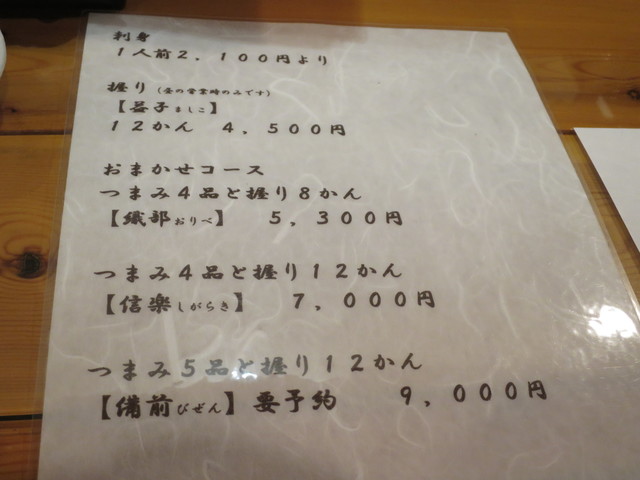 刺身
１人前２，１００円より
握り（昼の営業時のみです）
【益子ましこ】
１２かん　４，５００円
おまかせコース
つまみ４品と握り８かん
【織部おりべ】　５，３００円
つまみ４品と握り１２かん
【信楽しがらき】　７，０００円
つまみ５品と握り１２かん
【備前びぜん】要予約　９，０００円